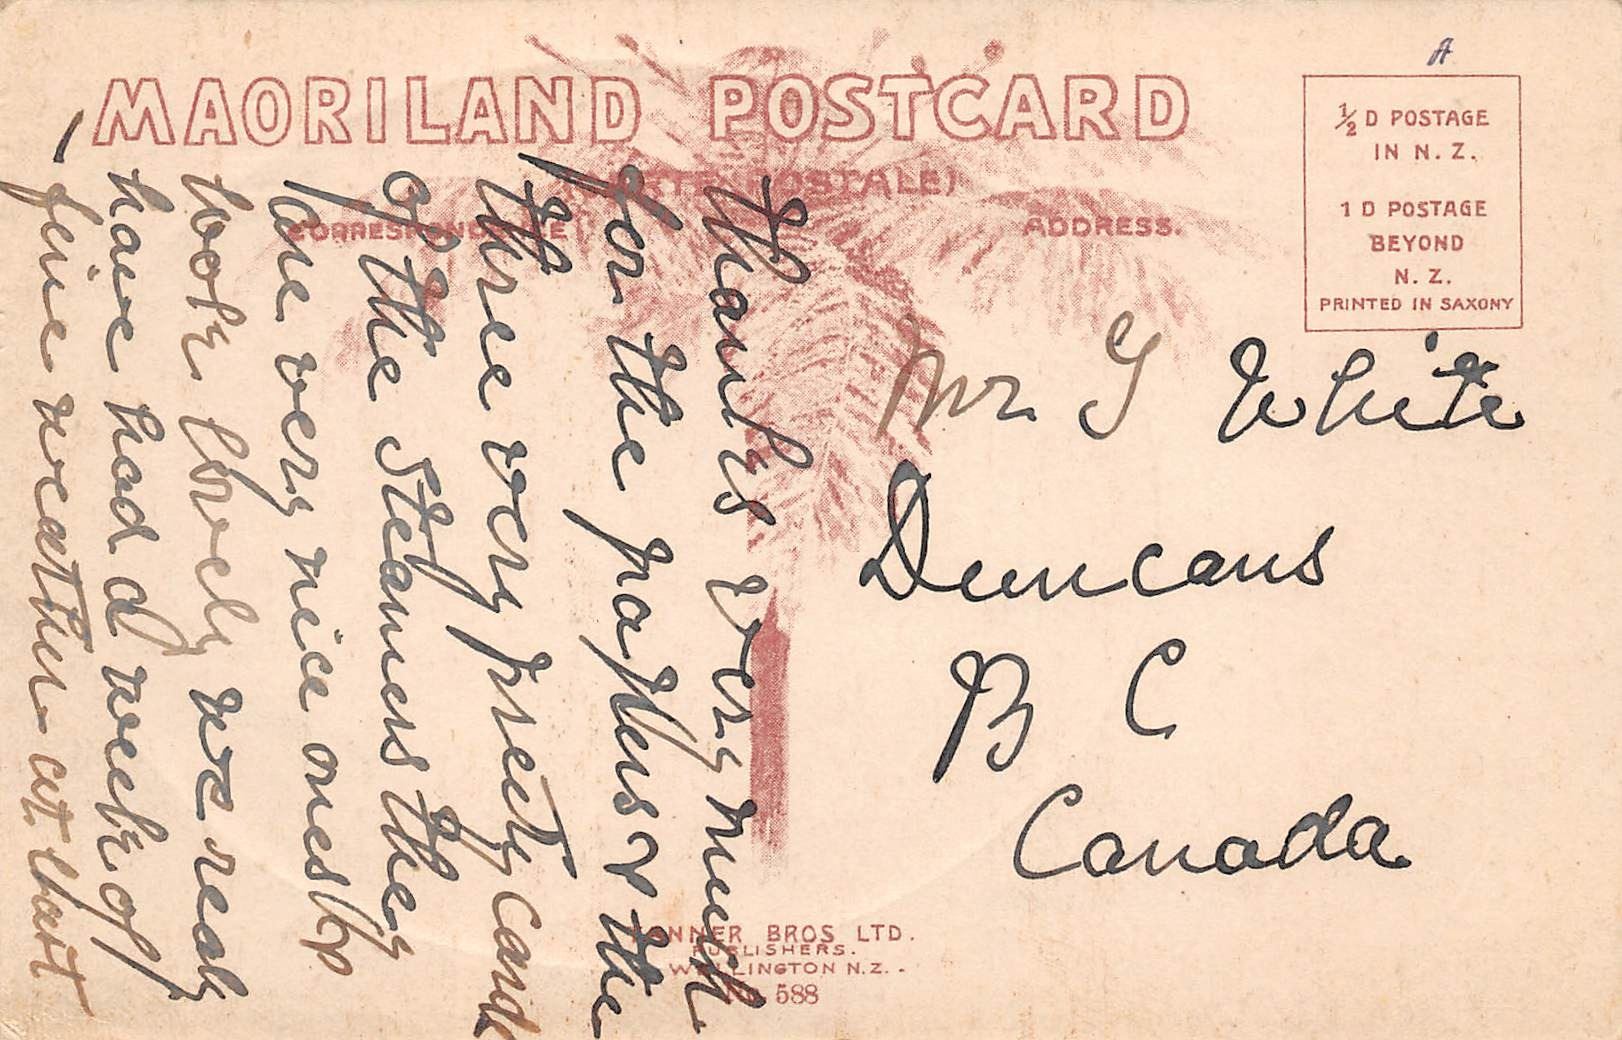 MAORILAND POSTCARD
(CARTE POSTALE)
CORRESPONDENCE
ADDRESS.
½ D POSTAGE
IN N. Z.
1 D POSTAGE
BEYOND
N. Z.
PRINTED IN SAXONY
Mr G White
Duncans
B C
Canada
Thanks very much
for the papers & the
three very pretty cards
of the steamers they
are very nice ones &
look lovely we realy
have had a week of
fine weather at last
TANNER BROS LTD.
PUBLISHERS.
WELLINGTON N.Z.
No 588